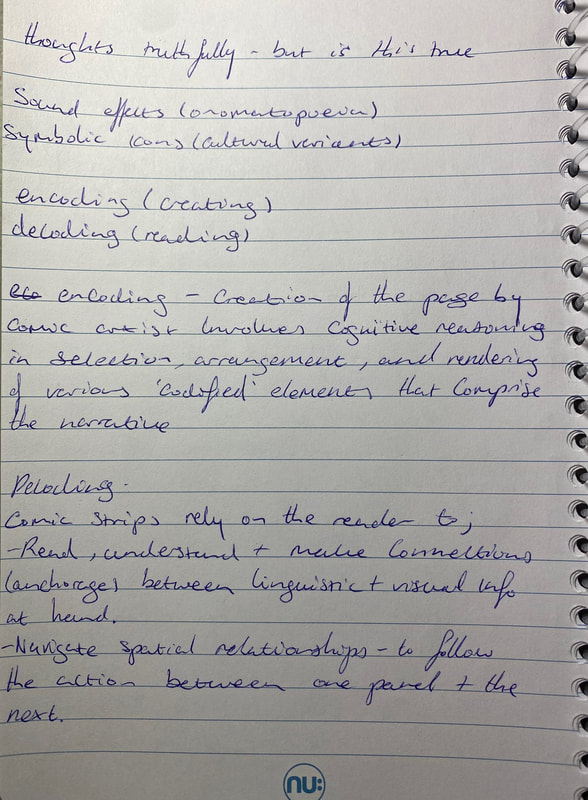 thoughts truthfully - but is this true
Sound effects (onomatopoeia)
Symbolic icons (cultural variants)
encoding (creating)
decoding (reading)
eco encoding - Creation of the page by
comic artist involves cognitive reasoning
in selection, arrangement, and rendering
of various 'codified' elements that comprise
the narrative
Decoding -
Comic strips rely on the reader to;
- Read, understand + make connections
(anchorage) between linguistic + visual info
at hand.
- Navigate spatial relationships - to follow
the action between one panel + the
next.
nu: